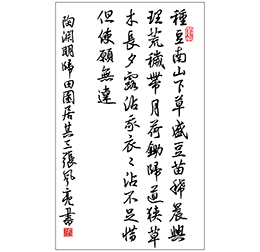 種豆南山下草盛豆苗稀晨興
理荒穢帶月荷鋤歸道狹草
木長夕露沾我衣〻沾不足惜
但使願無違
陶渊明歸田園居其三張亮書